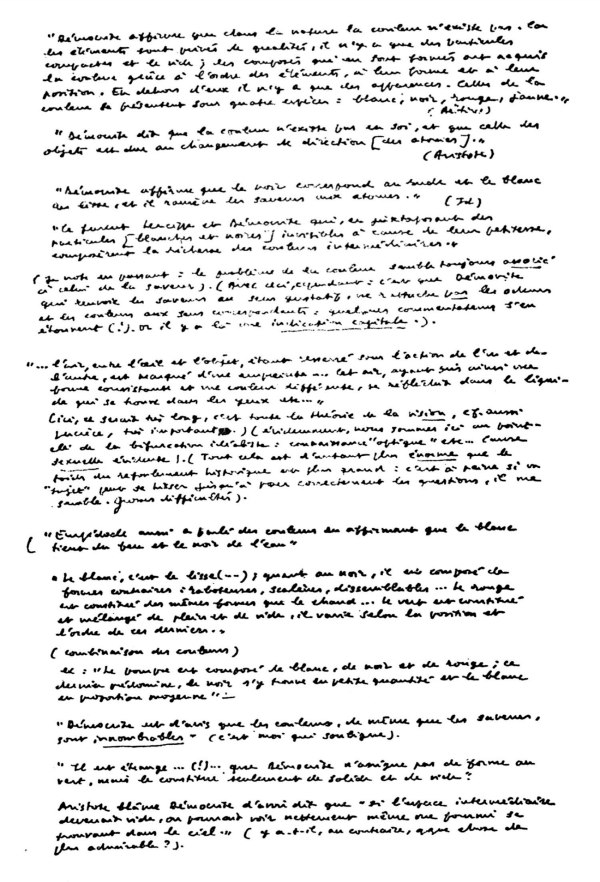 "Démocrite affirme que dans la nature la couleur n'existe pas. Car
les éléments sont privés de qualités, il n'y a que des particules
compactes et le vide ; les composés qui en sont formés ont acquis
la couleur grâce à l'ordre des éléments, à leur forme et à leur
position. En dehors d'eux il n'y a que des apparences. Celles de la
couleur se présentent sous quatre espèces : blanc, noir, rouge, jaune."
(Aétius)
"Démocrite dit que la couleur n'existe pas en soi, et que celle des
objets est due au changement de direction [des atomes]."
(Aristote)
"Démocrite affirme que le noir correspond au rude et le blanc
au lisse, et il ramène les saveurs aux atomes." (Id)
"Ce furent Leucippe et Démocrite qui, en juxtaposant des
particules [blanches et noires] invisibles à cause de leur petitesse,
composèrent la richesse des couleurs intermédiaires."
(Je note en passant : le problème de la couleur semble toujours associé
à celui de la saveur). (Avec ceci, cependant : c'est que Démocrite
qui renvoie les saveurs au sens gustatif, ne rattache pas les odeurs
et les couleurs aux sens correspondants : quelques commentateurs s'en
étonnent (!). Or il y a là une indication capitale.).
"... l'air, entre l'œil et l'objet, étant resserré sous l'action de l'un et de
l'autre, est marqué d'une empreinte... Cet air, ayant pris ainsi une
forme consistante et une couleur différente, se réfléchit dans le liqui-
de qui se trouve dans les yeux etc..."
(ici, ce serait très long, c'est toute la théorie de la vision, cf. aussi
Lucrèce, très important.) (évidemment, nous sommes ici au point-
clé de la bifurcation idéaliste : connaissance "optique" etc... Cause
sexuelle évidente). (Tout cela est d'autant plus énorme que le
poids du refoulement historique est plus grand : c'est à peine si un
"sujet" peut se hisser jusqu'à poser correctement les questions, il me
semble. difficultés).
( "Empédocle aussi a parlé des couleurs en affirmant que le blanc
tient du feu et le noir de l'eau"
"Le blanc, c'est le lisse (--) ; quant au noir, il est composé de
formes contraires : raboteuses, scalènes, dissemblables... Le rouge
est constitué des mêmes formes que le chaud... Le vert est constitué
et mélangé de plein et de vide, il varie selon la position et
l'ordre de ces derniers."
(combinaison des couleurs)
ex : "Le pourpre est composé de blanc, de noir et de rouge ; ce
dernier prédomine, le noir s'y trouve en petite quantité et le blanc
en proportion moyenne"
"Démocrite est d'avis que les couleurs, de même que les saveurs,
sont innombrables" (c'est moi qui souligne).
"Il est étrange... (!)... que Démocrite n'assigne pas de forme au
vert, mais le constitue seulement de solide et de vide?
Aristote blâme Démocrite d'avoir dit que "si l'espace intermédiaire
devenait vide, on pourrait voir nettement même une fourmi se
trouvant dans le ciel." (y a-t-il, au contraire, quelque chose de
plus admirable?).